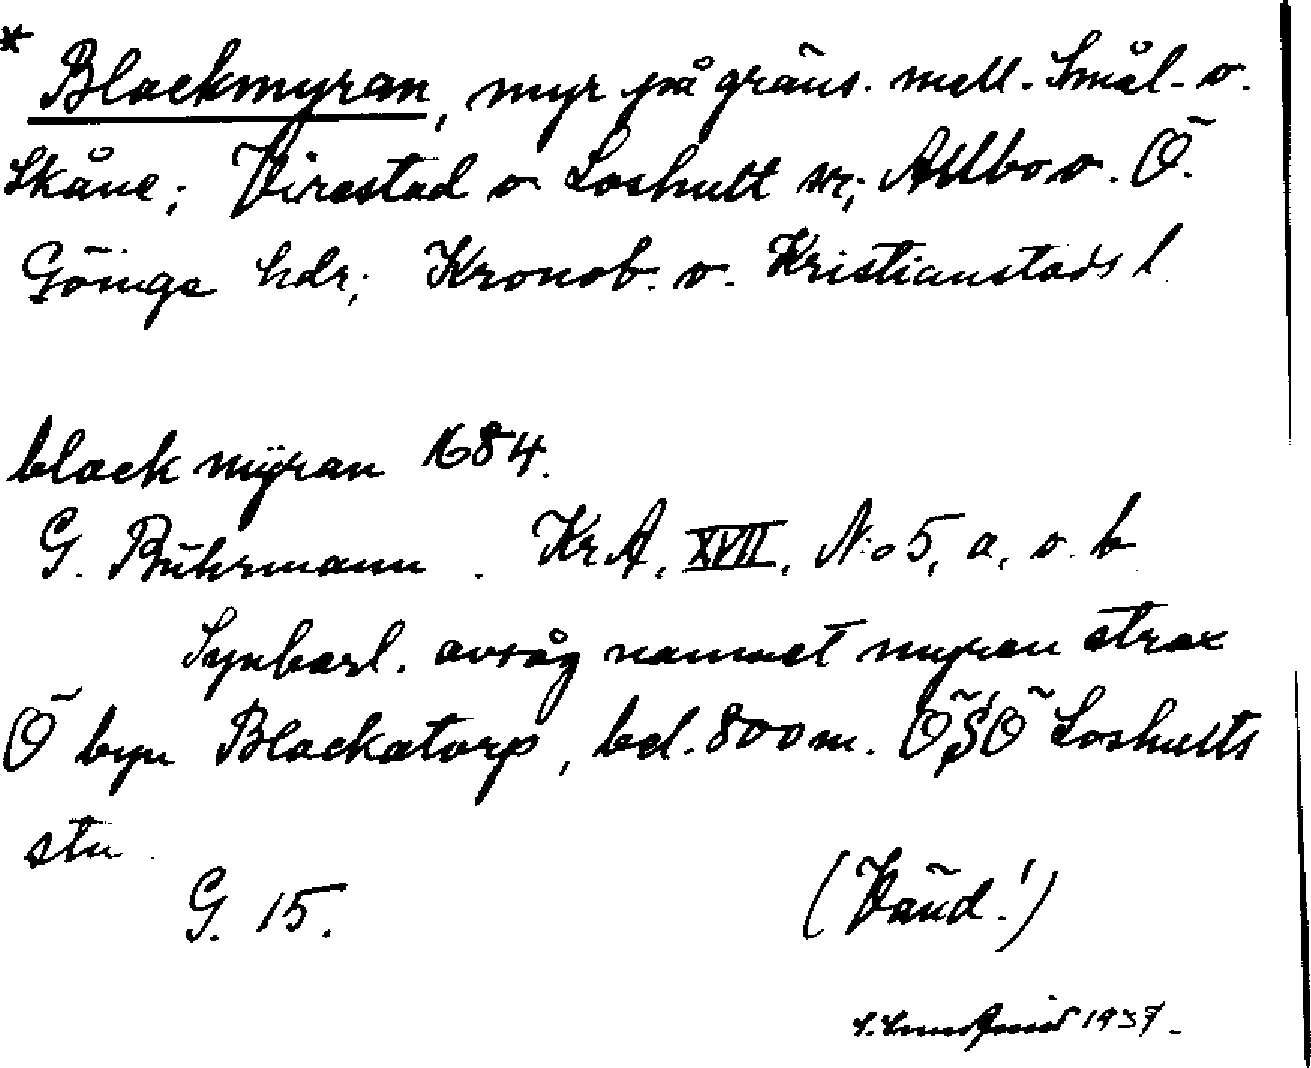 * Blackmyran, myr på gräns. mell. Smål. o.
Skåne; Virestad o Loshult snr; Allbo o. Ö.
Göinge hdr; Kronob. o. Kristianstads l.
black mÿran 1684.
G. Buhrmann. KrA, XVII, No 5, a, o. b
Synbarl. avsåg namnet myren strax
Ö byn Blackatorp, bel. 800 m. ÖSÖ Loshults
stn.
G. 15. (Vänd!)
1937.